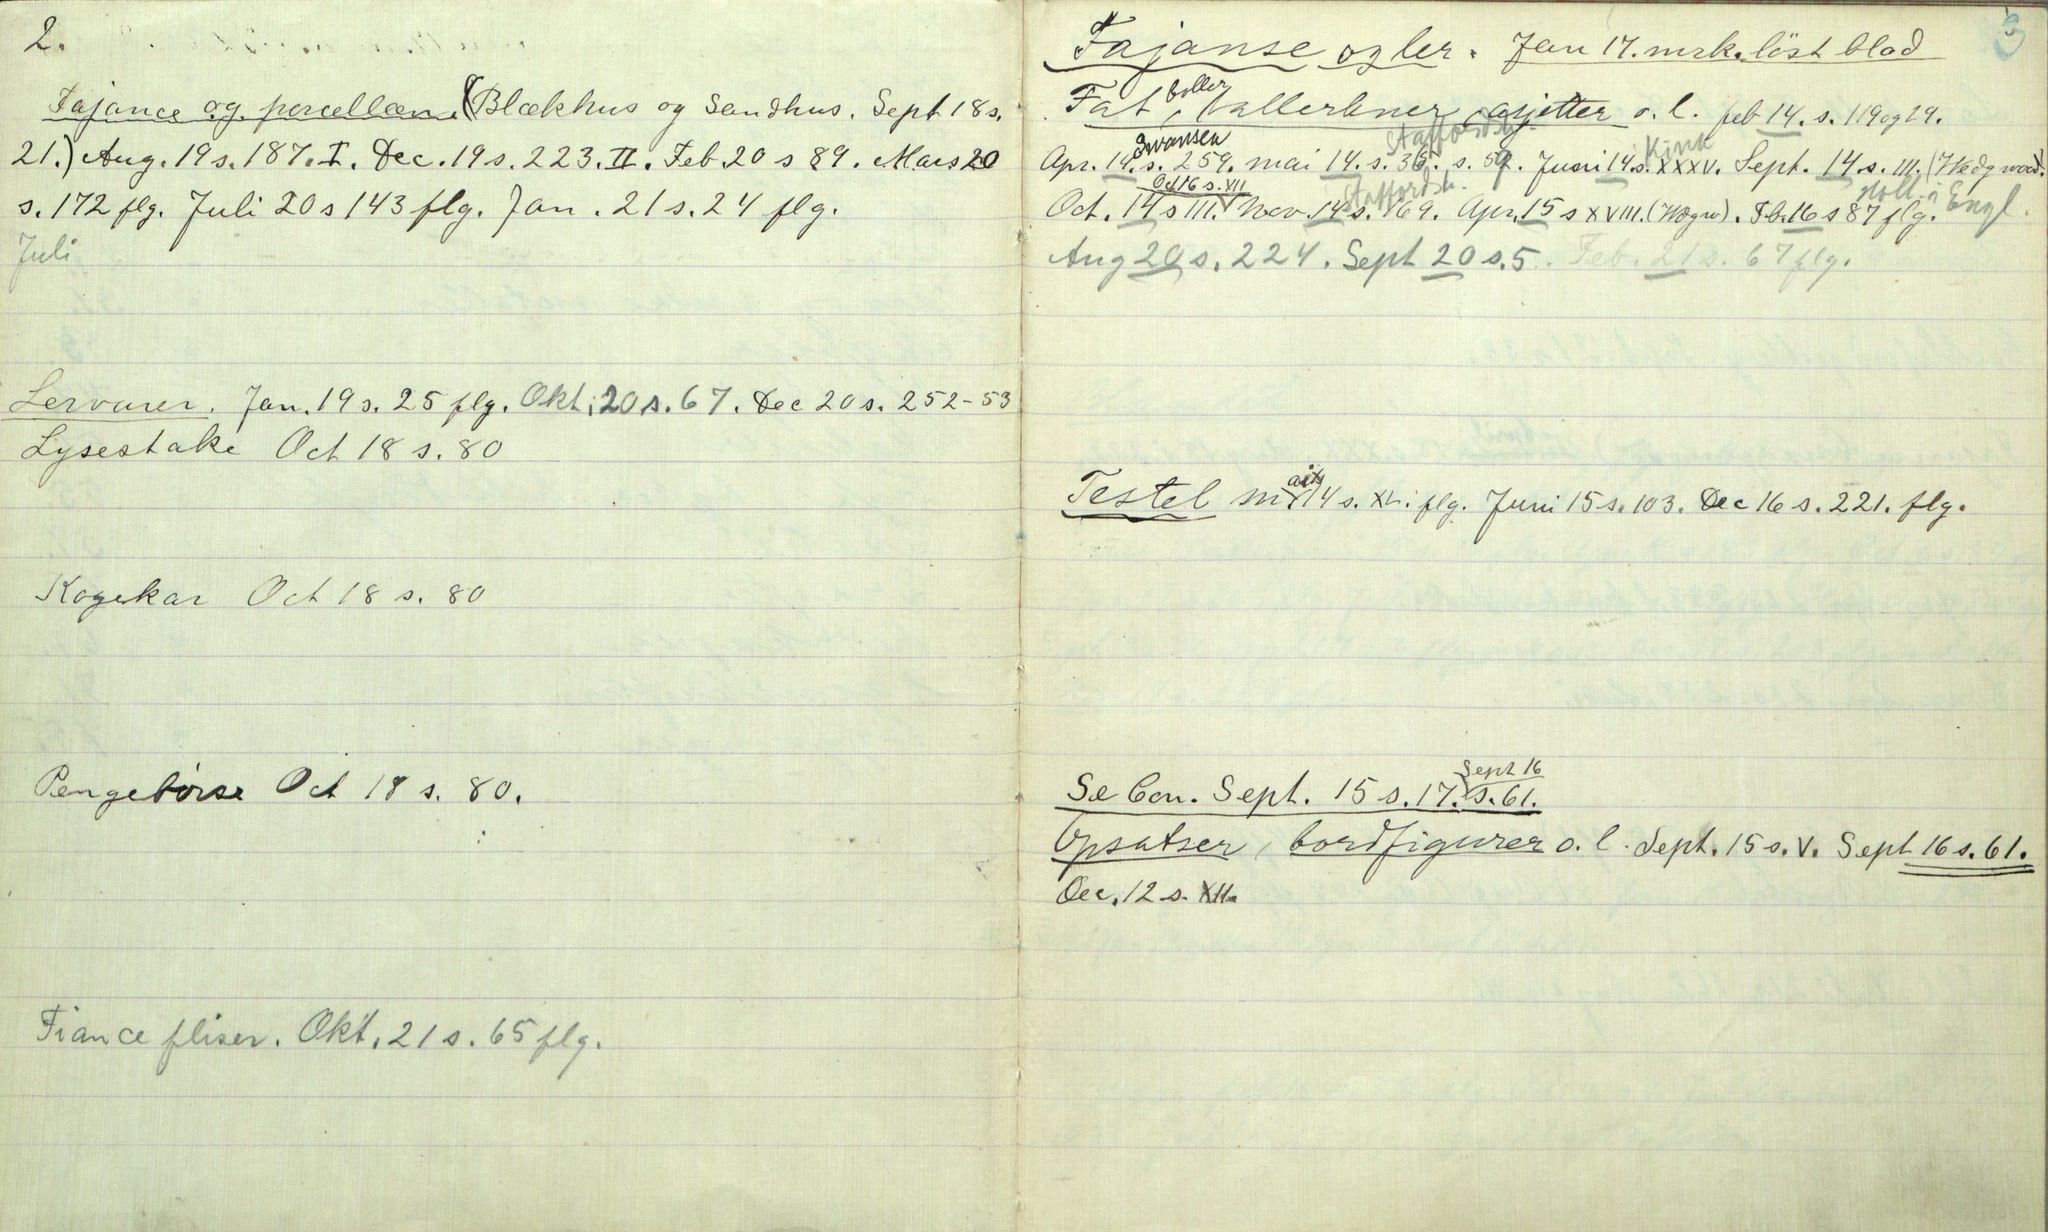 2.
Fajance og porcellæn. (Blækhus og Sandhus. Sept 18 s.
21.) Aug. 19 s. 187. I. Dec. 19 s. 223. II. Feb 20 s 89. Mars 20
s. 172 flg. Juli 20 s 143 flg. Jan. 21 s. 24 flg.
Juli
Lervarer. Jan. 19 s. 25 flg. Okt. 20 s. 67. Dec 20 s. 252-53
Lysestake Oct 18 s. 80
Kogekar Oct 18 s. 80
Pengebörse Oct 18 s. 80.
Fiance fliser. Okt. 21 s. 65 flg.
3
Fajanse og ler. Jan 17. mrk. löst blad
boller
Fat, tallerkner, asjetter o. l. feb 14. s. 119 og 29.
Swansea Staffordsh. Kink
Apr. 14. s. 259. mai 14. s. 36. s. 59. Juni 14. s. XXXV. Sept. 14. s. III. (Wedgwood).
Oct 16 s. VII Staffordsh. Holl. i Engl.
Oct. 14 s III. Nov. 14 s. 169. Apr. 15 s XVIII. (Wgw). Feb. 16 s 87 flg.
Aug 20 s. 224. Sept 20 s. 5. Feb. 21 s. 67 flg.
Testel 14 s. XL. flg. Juni 15 s. 103. Dec 16 s. 221. flg.
Sept 16
Se Con. Sept. 15 s. 17. s. 61.
Opsatser, bordfigurer o. l. Sept. 15 s. V. Sept 16 s. 61.
Dec. 12 s. XII.